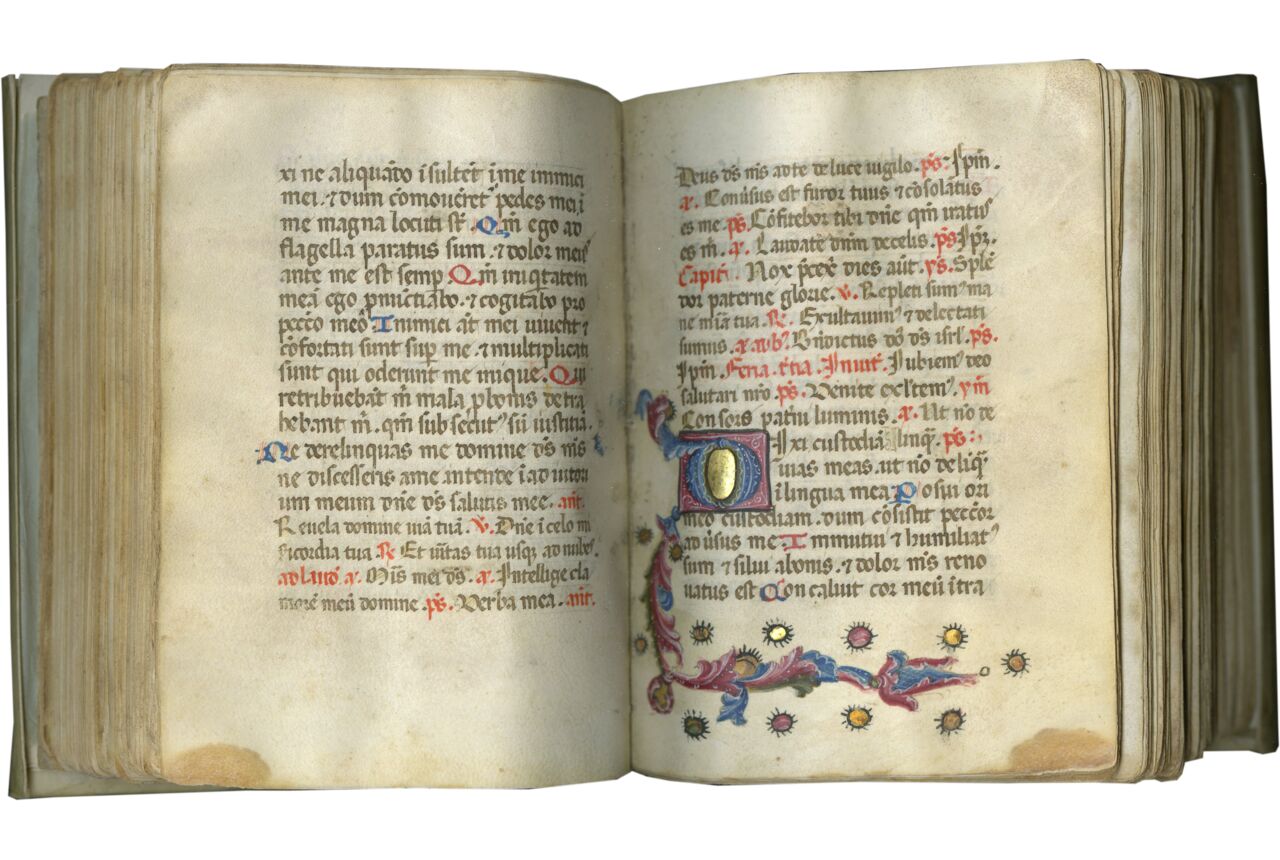 xi ne aliquādo īsultēt īme inimici
mei. ⁊ dum cōmouēret pedes mei ī
me magna locuti st̄ Qm̄ ego ad
flagella paratus sum. ⁊ dolor meus
ante me est semp Qm̄ iniqtatem
meā ego pnuctiabo. ⁊ cogitabo pro
pccto meo Inimici at mei uiuent ⁊
cōfortati sunt sup me. ⁊ multiplicati
sunt qui oderunt me inique. Qui
retribuebāt m̄ mala pbonis detra
hebant m̄. qm̄ subsecut' sū iustitiā.
Ne derelinquas me domine ds̄ ms̄
ne discesseris ame intende īadiutori
um meum dn̄e ds̄ salutis mee. ant̄.
Reuela domine uiā tuā. v. Dn̄e ī celo mi
sericordia tua R Et uītas tua usq; ad nubes
ad laud. a. Ms̄ mei ds̄. a. Intellige cla
morē meū domine ps̄. Verba mea. ant̄.
Deus ds̄ ms̄ adte deluce uigilo. ps̄. Ipm̄.
a. Conūsus est furor tuus ⁊ cōsolatus
es me. ps̄. Cōfitebor tibi dn̄e qm̄ iratus
es m̄. a. Laudate dnm̄ decelis. ps̄ Ip̄z.
Capitt̄. Nox pcex dies aūt. ys. Splē
dor paterne glorie. v. Repleti sum' ma
ne mīa tua. R. Exultauim' ⁊ delectati
sumus. a. adb. Bn̄dictus dō ds̄ isrl. ps̄.
Ipm̄. Feria. t̄tia. Inuit̄. Iubilem' deo
salutari nro. ps̄. Venite exltem'. ym̄
Consors patni luminis. a. Ut nō de
Dixi custodiā linq. ps̄:
uias meas. ut nō deliq̄
ī lingua mea Posui ori
meo custodiam. dum cōsistit peccor
adūsus me Immutui ⁊ humiliat'
sum ⁊ silui abonis. ⁊ dolor ms̄ reno
uatus est Concaluit cor meū ītra